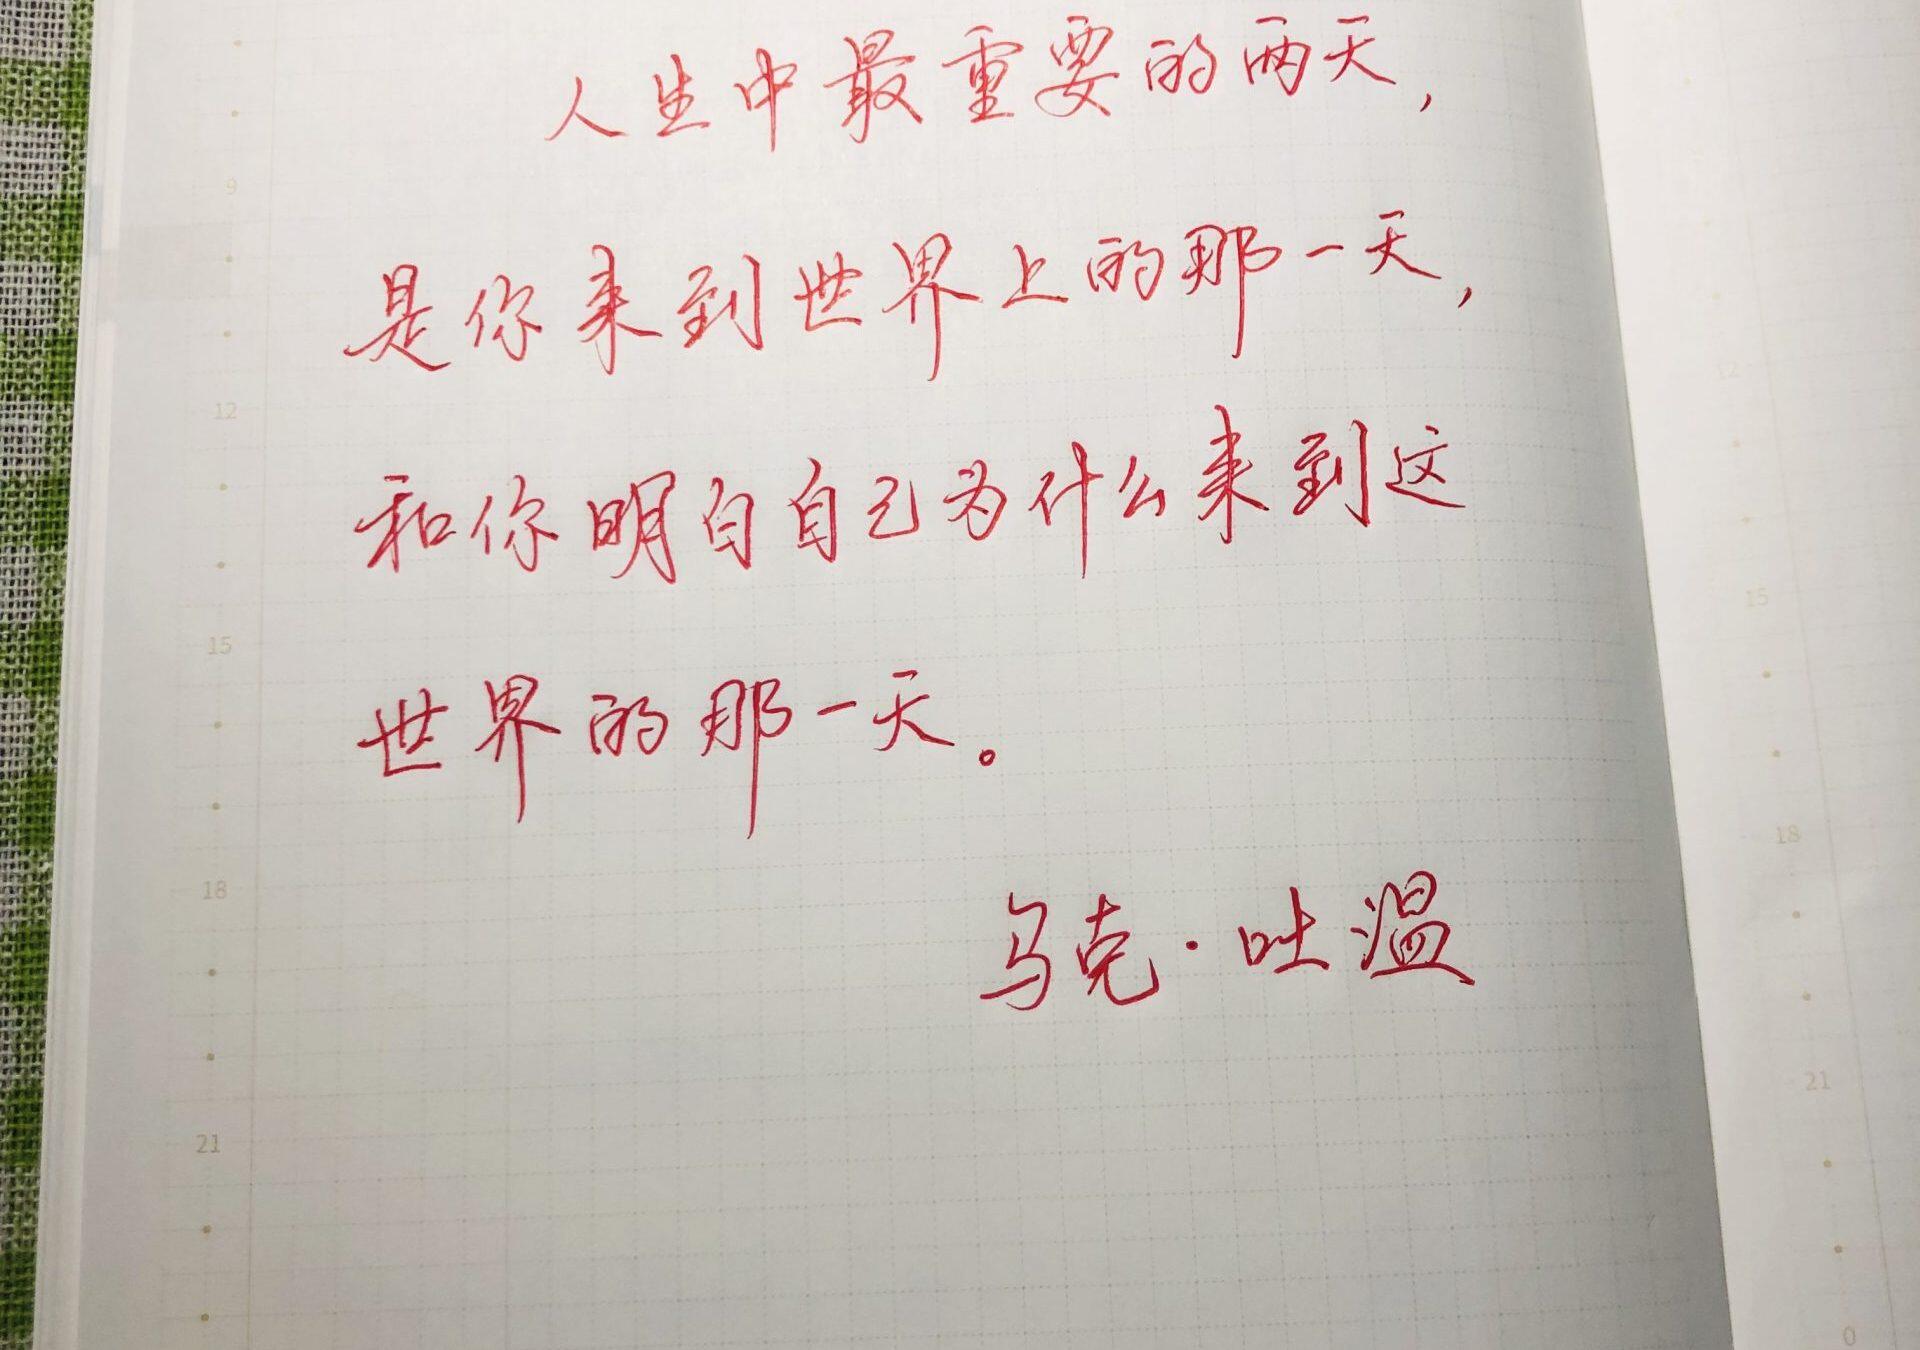 人生中最重要的两天，
是你来到世界上的那一天，
和你明白自己为什么来到这
世界的那一天。
马克·吐温
9
12
15
18
21
12
15
18
21
0